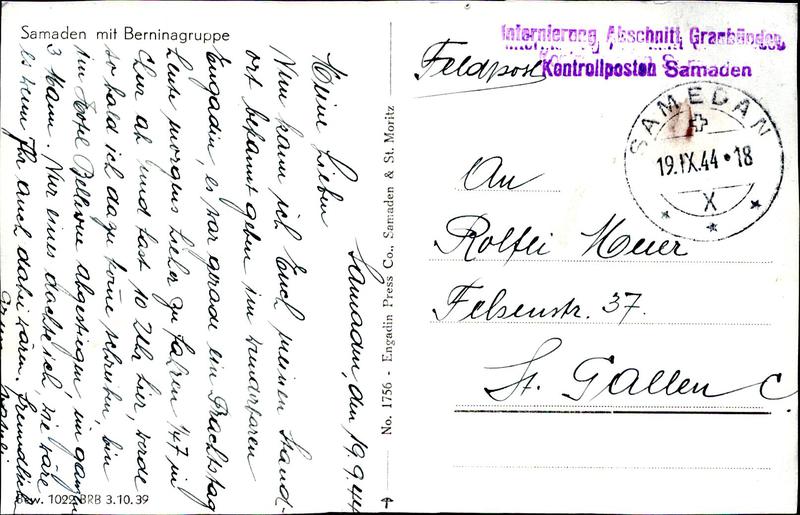 Samaden mit Berninagruppe
Samaden, den 19.9.44
Meine Lieben
Nun kann ich Euch meinen Stand-
ort bekannt geben im wunderbaren
Engadin, es war grade ein Prachtstag
heute morgens hieher zu fahren 7
Chur ab und fast 10 Uhr hier, werde
so bald ich dazu kome schreiben, bin
im Hotel Bellevue abgestiegen, im ganzen
3 Mann. Nur eines dachte ich, wie wäre
es wenn Ihr auch dabei wären. Freundlichen
Bew. 1022 BRB 3.10.39
No. 1756 - Engadin Press Co., Samaden & St. Moritz
Internierung Abschnitt Graubünden
Kontrollposten Samaden
Feldpost
SAMEDAN
19.IX.44•18
X
An
Rolfli Meier
Felsenstr. 37.
St. Gallen C